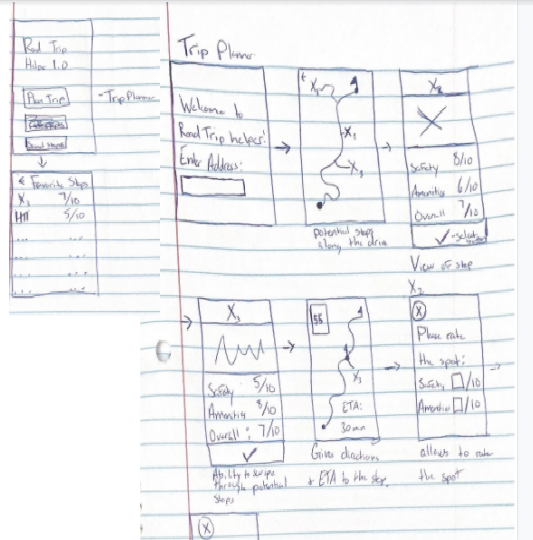 Road Trip
Helper 1.0
Plan Trip
- Trip Planner
← Favorite Stops
X₁ 7/10
5/10
... ...
... ...
... ...
... ...
Trip Planner
Welcome to
Road Trip helper!
Enter Address:
X₁
X₃
potential stops
along the drive
X₂
Safety 8/10
Amenities 6/10
Overall 7/10
✓ =
View of stop
X₂
X₃
Safety 5/10
Amenities 8/10
Overall: 7/10
✓
Ability to swipe
through potential
stops
55
X₃
ETA:
30 min
Gives directions
+ ETA to the stop
X
Please rate
the spot:
Safety /10
Amenities /10
allows to rate
the spot
X